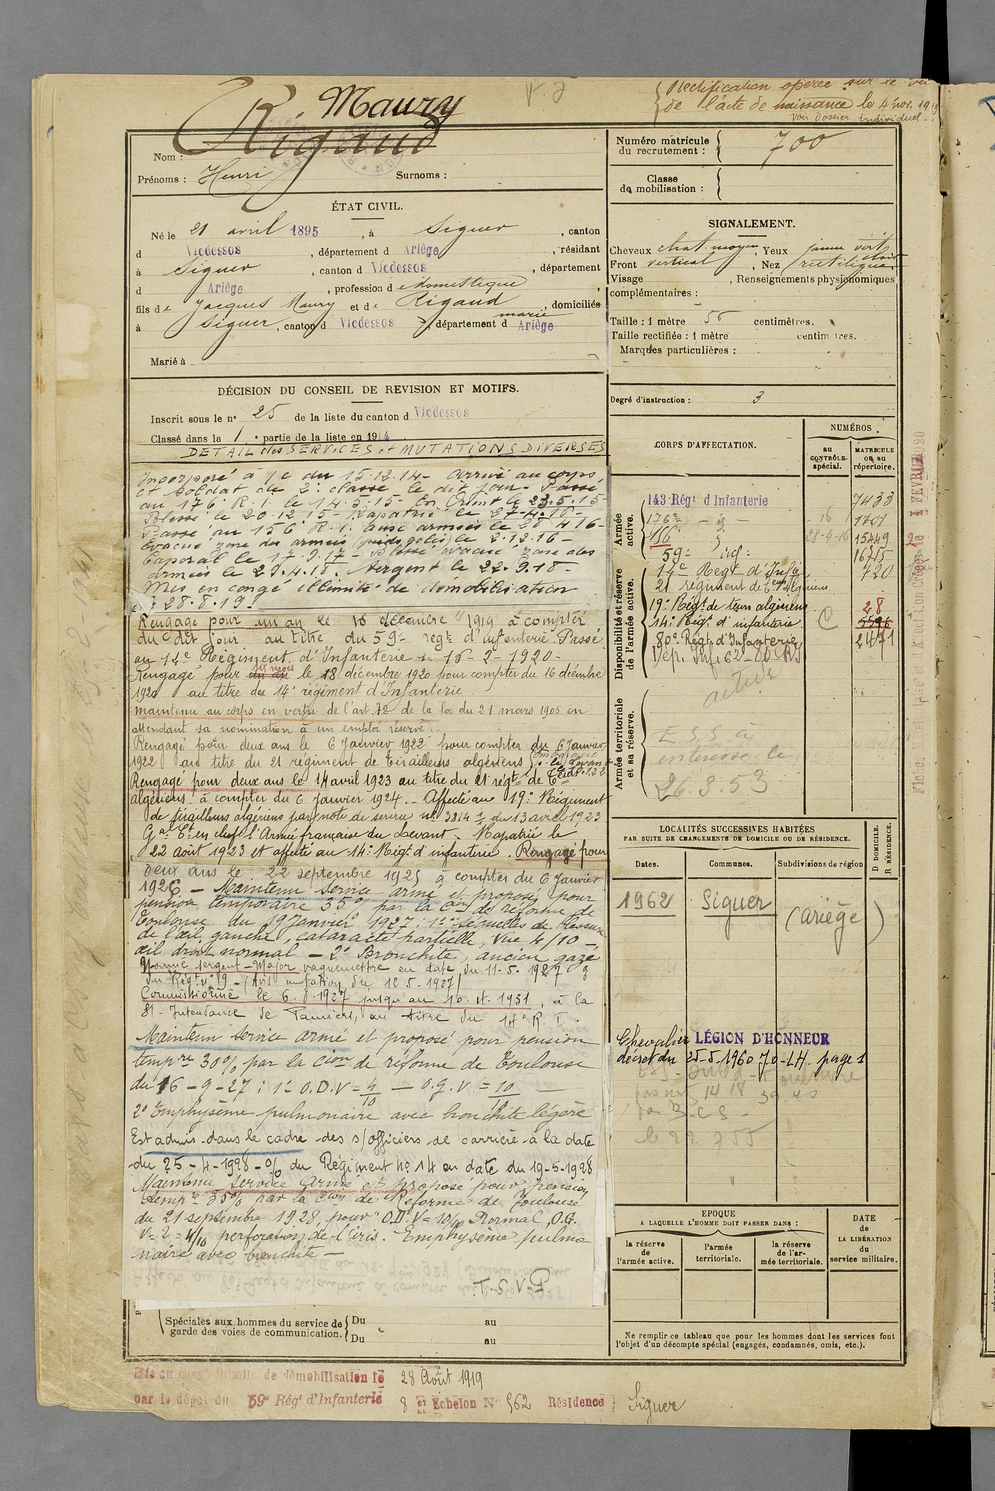 Maury
Rigaud
Rectification opérée sur le
de l'acte de naissance le 4 nov. 19
Voir Dossier individuel.
Nom :
Prénoms : Henri Surnoms :
ÉTAT CIVIL.
Né le 21 avril 1895, à Siguer, canton
d Vicdessos, département d Ariège, résidant
à Siguer, canton d Vicdessos, département
d Ariège, profession de domestique
fils de Jacques Maury et de Rigaud marie, domiciliés
à Siguer, canton d Vicdessos, département d Ariège
Marié à
DÉCISION DU CONSEIL DE REVISION ET MOTIFS.
Inscrit sous le n° 25 de la liste du canton d Vicdessos
Classé dans la 1e partie de la liste en 1914
DETAIL des SERVICES et MUTATIONS DIVERSES
Incorporé à /c du 15.12.14 - Arrivé au corps
et soldat de 2e classe le dit jour - Passé
au 176 R.I. le 14.5.15 -
Blessé le 20.12.15 - Rapatrié le 27.4.16 -
Passé au 156 R.I. aux armées le 28.4.16 -
Evacué zone des armées (pieds gelés) le 2.12.16 -
Caporal le 17.9.17 - Blessé évacué zone des
armées le 29.4.18. Sergent le 22.9.18 -
Mis en congé illimité de démobilisation
le 28.8.19.
Rengagé pour un an le 16 décembre 1919 à compter
du dit jour au titre du 59e regt d'infanterie. Passé
au 14e Régiment d'Infanterie le 16-2-1920 -
Rengagé pour six mois le 18 décembre 1920 pour compter du 16 décembre
1920 au titre du 14e régiment d'Infanterie.
Maintenu au corps en vertu de l'art. 72 de la loi du 21 mars 1905 en
attendant sa nomination à un emploi réservé.
Rengagé pour deux ans le 6 Janvier 1922 pour compter du 6 Janvier
1922 au titre du 21 régiment de tirailleurs algériens
Rengagé pour deux ans le 14 avril 1923 au titre du 21 régt de Tir
algériens à compter du 6 Janvier 1924. - Affecté au 19e Régiment
de tirailleurs algériens par note de service n° 3814/1 du 13 avril 1923
Gal Ct en chef l'Armée française du Levant. Rapatrié le
22 Août 1923 et affecté au 14e Régt d'infanterie. Rengagé pour
deux ans le 22 septembre 1925 à compter du 6 Janvier
1926 - Maintenu service armé et proposé pour
pension temporaire 35% par la Con de réforme de
Toulouse du 19 Janvier 1927 : 1° séquelles de lésions
de l'œil gauche, cataracte partielle, vue 4/10 -
œil droit normal - 2° Bronchite, ancien gazé
Nommé sergent-Major vaguemestre en date du 11-5-1927
du Régt n° 9 - (Avis mutation du 12.5.1927)
Commissionné le 6.8.1927 jusqu'au 10.11.1931, à la
St-Intendance de Pamiers, au titre du 14e R.I.
Maintenu service armé et proposé pour pension
tempre 30% par la Cion de réforme de Toulouse
du 16-9-27 : 1° O.D.V = 4/10 - O.G.V = 10/10
2° Emphysème pulmonaire avec bronchite légère
Est admis dans le cadre des s/officiers de carrière à la date
du 25-4-1928 - O/ du Régiment N° 14 en date du 19-5-1928
Maintenu service armé et proposé pour pension
tempre 35% par la Cion de Réforme de Toulouse
du 21 septembre 1928, pour O.D. V= 10/10 Normal, O.G.
V= 4/10 perforation de l'iris. Emphysème pulmo
naire avec bronchite -
T.S.V.P
Spéciales aux hommes du service de garde des voies de communication.
Du au
Du au
Mis en congé illimité de démobilisation le 28 Août 1919
par le dépôt du 59e Régt d'Infanterie 8 er Echelon N° 562 Résidence : Siguer
Numéro matricule du recrutement : 700
Classe de mobilisation :
SIGNALEMENT.
Cheveux chat. moyen, Yeux jaune vert clair
Front vertical, Nez rectiligne
Visage , Renseignements physionomiques
complémentaires :
Taille : 1 mètre 56 centimètres.
Taille rectifiée : 1 mètre centimètres.
Marques particulières :
Degré d'instruction : 3
CORPS D'AFFECTATION.
NUMÉROS
au CONTRÔLE spécial.
MATRICULE ou au répertoire.
Armée active.
143 Régt d'Infanterie 7433
176e - d° - 16 1701
156 d° 28-4-16 15449
59e inf: 16715
Disponibilité et réserve de l'armée active.
14e Regt d'Infie 720
21 régiment de tirs Algériens
19e Régt de tirrs algériens 28
14e Régt d'infanterie C 5596
80e Régt d'Infanterie 2471
Dép. Inf. 62 - 80 RI
Armée territoriale et sa réserve.
actus
ESS à
intéressé le
26.3.53
LOCALITÉS SUCCESSIVES HABITÉES
PAR SUITE DE CHANGEMENTS DE DOMICILE OU DE RÉSIDENCE.
Dates. Communes. Subdivisions de région
D DOMICILE.
R RÉSIDENCE.
1962 Siguer (Ariège)
Chevalier LÉGION D'HONNEUR
décret du 25-5-1960 JO-LH page 1
14 18 39.45
EPOQUE
A LAQUELLE L'HOMME DOIT PASSER DANS :
la réserve de l'armée active.
l'armée territoriale.
la réserve de l'armée territoriale.
DATE de LA LIBÉRATION du service militaire.
Ne remplir ce tableau que pour les hommes dont les services font
l'objet d'un décompte spécial (engagés, condamnés, omis, etc.).